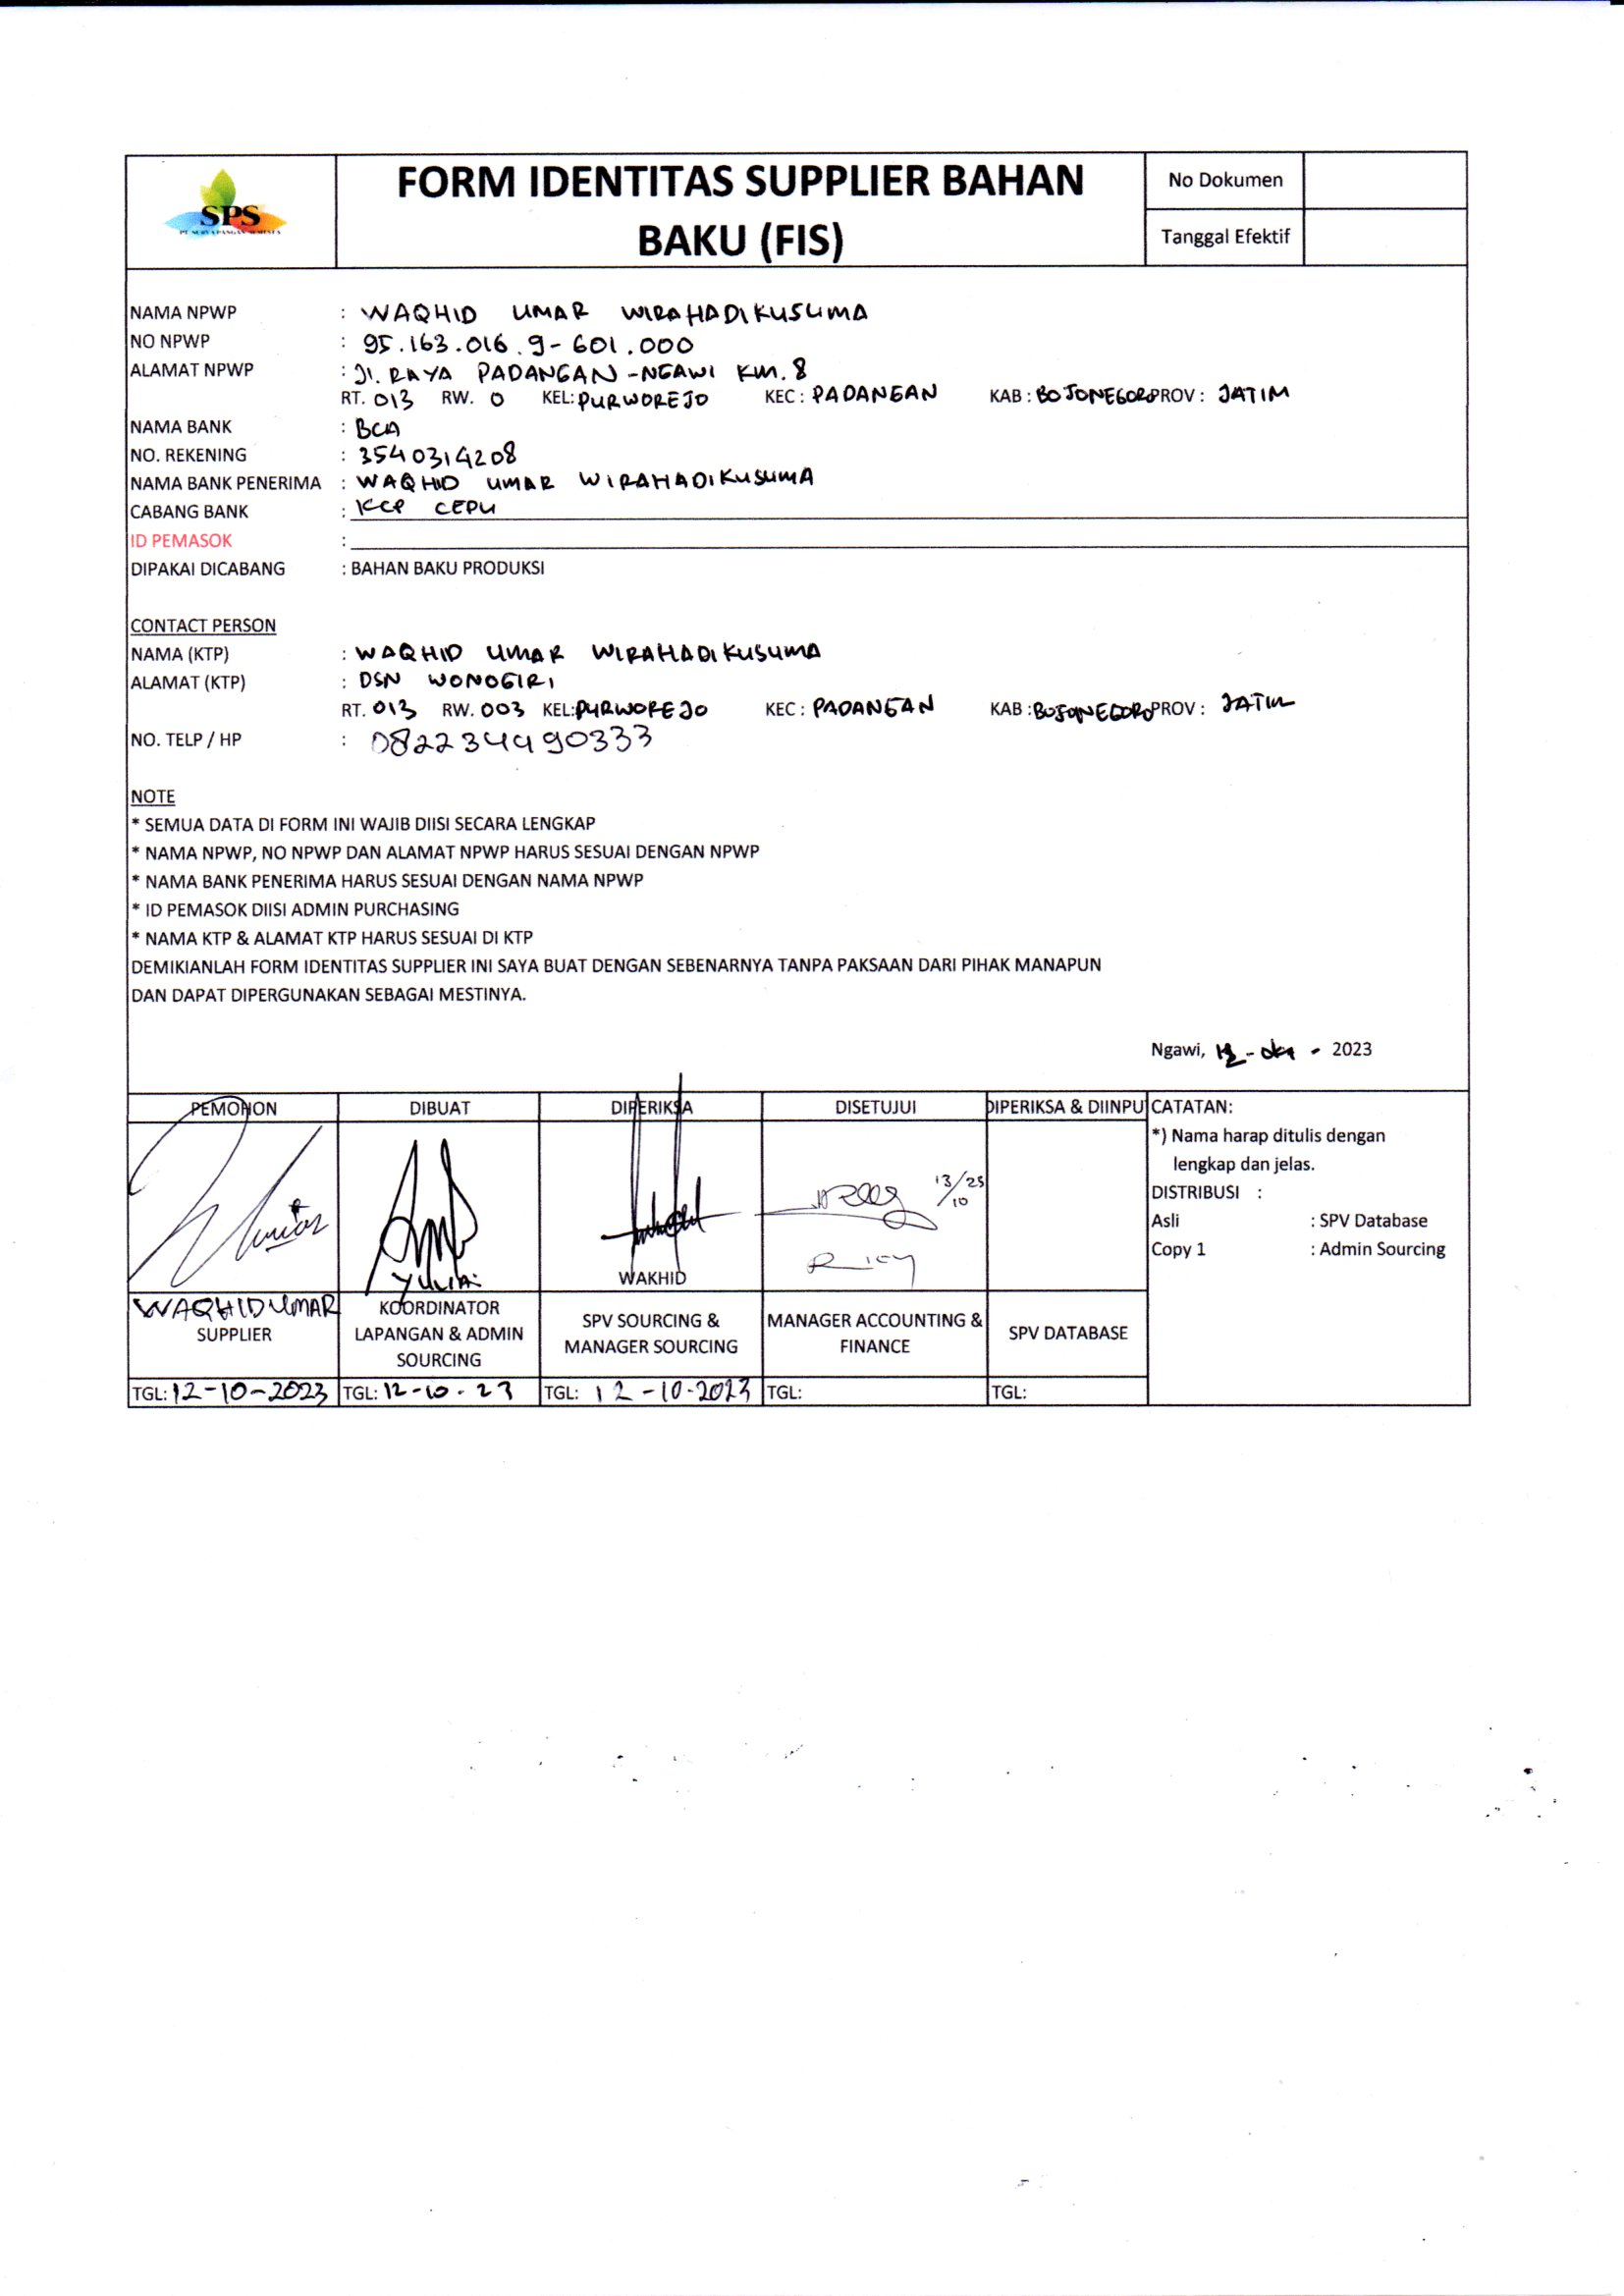 SPS
FORM IDENTITAS SUPPLIER BAHAN
BAKU (FIS)
No Dokumen
Tanggal Efektif
NAMA NPWP : WAQHID UMAR WIRAHADIKUSUMA
NO NPWP : 95.163.016.9-601.000
ALAMAT NPWP : Jl. RAYA PADANGAN-NGAWI KM. 8
RT. 013 RW. 0 KEL: PURWOREJO KEC : PADANGAN KAB : BOJONEGORO PROV : JATIM
NAMA BANK : BCA
NO. REKENING : 3540314208
NAMA BANK PENERIMA : WAQHID UMAR WIRAHADIKUSUMA
CABANG BANK : KCP CEPU
ID PEMASOK :
DIPAKAI DICABANG : BAHAN BAKU PRODUKSI
CONTACT PERSON
NAMA (KTP) : WAQHID UMAR WIRAHADIKUSUMA
ALAMAT (KTP) : DSN WONOGIRI
RT. 013 RW. 003 KEL: PURWOREJO KEC : PADANGAN KAB : BOJONEGORO PROV : JATIM
NO. TELP / HP : 082234490333
NOTE
* SEMUA DATA DI FORM INI WAJIB DIISI SECARA LENGKAP
* NAMA NPWP, NO NPWP DAN ALAMAT NPWP HARUS SESUAI DENGAN NPWP
* NAMA BANK PENERIMA HARUS SESUAI DENGAN NAMA NPWP
* ID PEMASOK DIISI ADMIN PURCHASING
* NAMA KTP & ALAMAT KTP HARUS SESUAI DI KTP
DEMIKIANLAH FORM IDENTITAS SUPPLIER INI SAYA BUAT DENGAN SEBENARNYA TANPA PAKSAAN DARI PIHAK MANAPUN
DAN DAPAT DIPERGUNAKAN SEBAGAI MESTINYA.
Ngawi, 12 - okt - 2023
PEMOHON DIBUAT DIPERIKSA DISETUJUI DIPERIKSA & DIINPU CATATAN:
*) Nama harap ditulis dengan
lengkap dan jelas.
DISTRIBUSI :
Asli : SPV Database
Copy 1 : Admin Sourcing
13/10
YULIA WAKHID
WAQHID UMAR
SUPPLIER
KOORDINATOR
LAPANGAN & ADMIN
SOURCING
SPV SOURCING &
MANAGER SOURCING
MANAGER ACCOUNTING &
FINANCE
SPV DATABASE
TGL: 12-10-2023 TGL: 12-10-23 TGL: 12-10-2023 TGL: TGL: